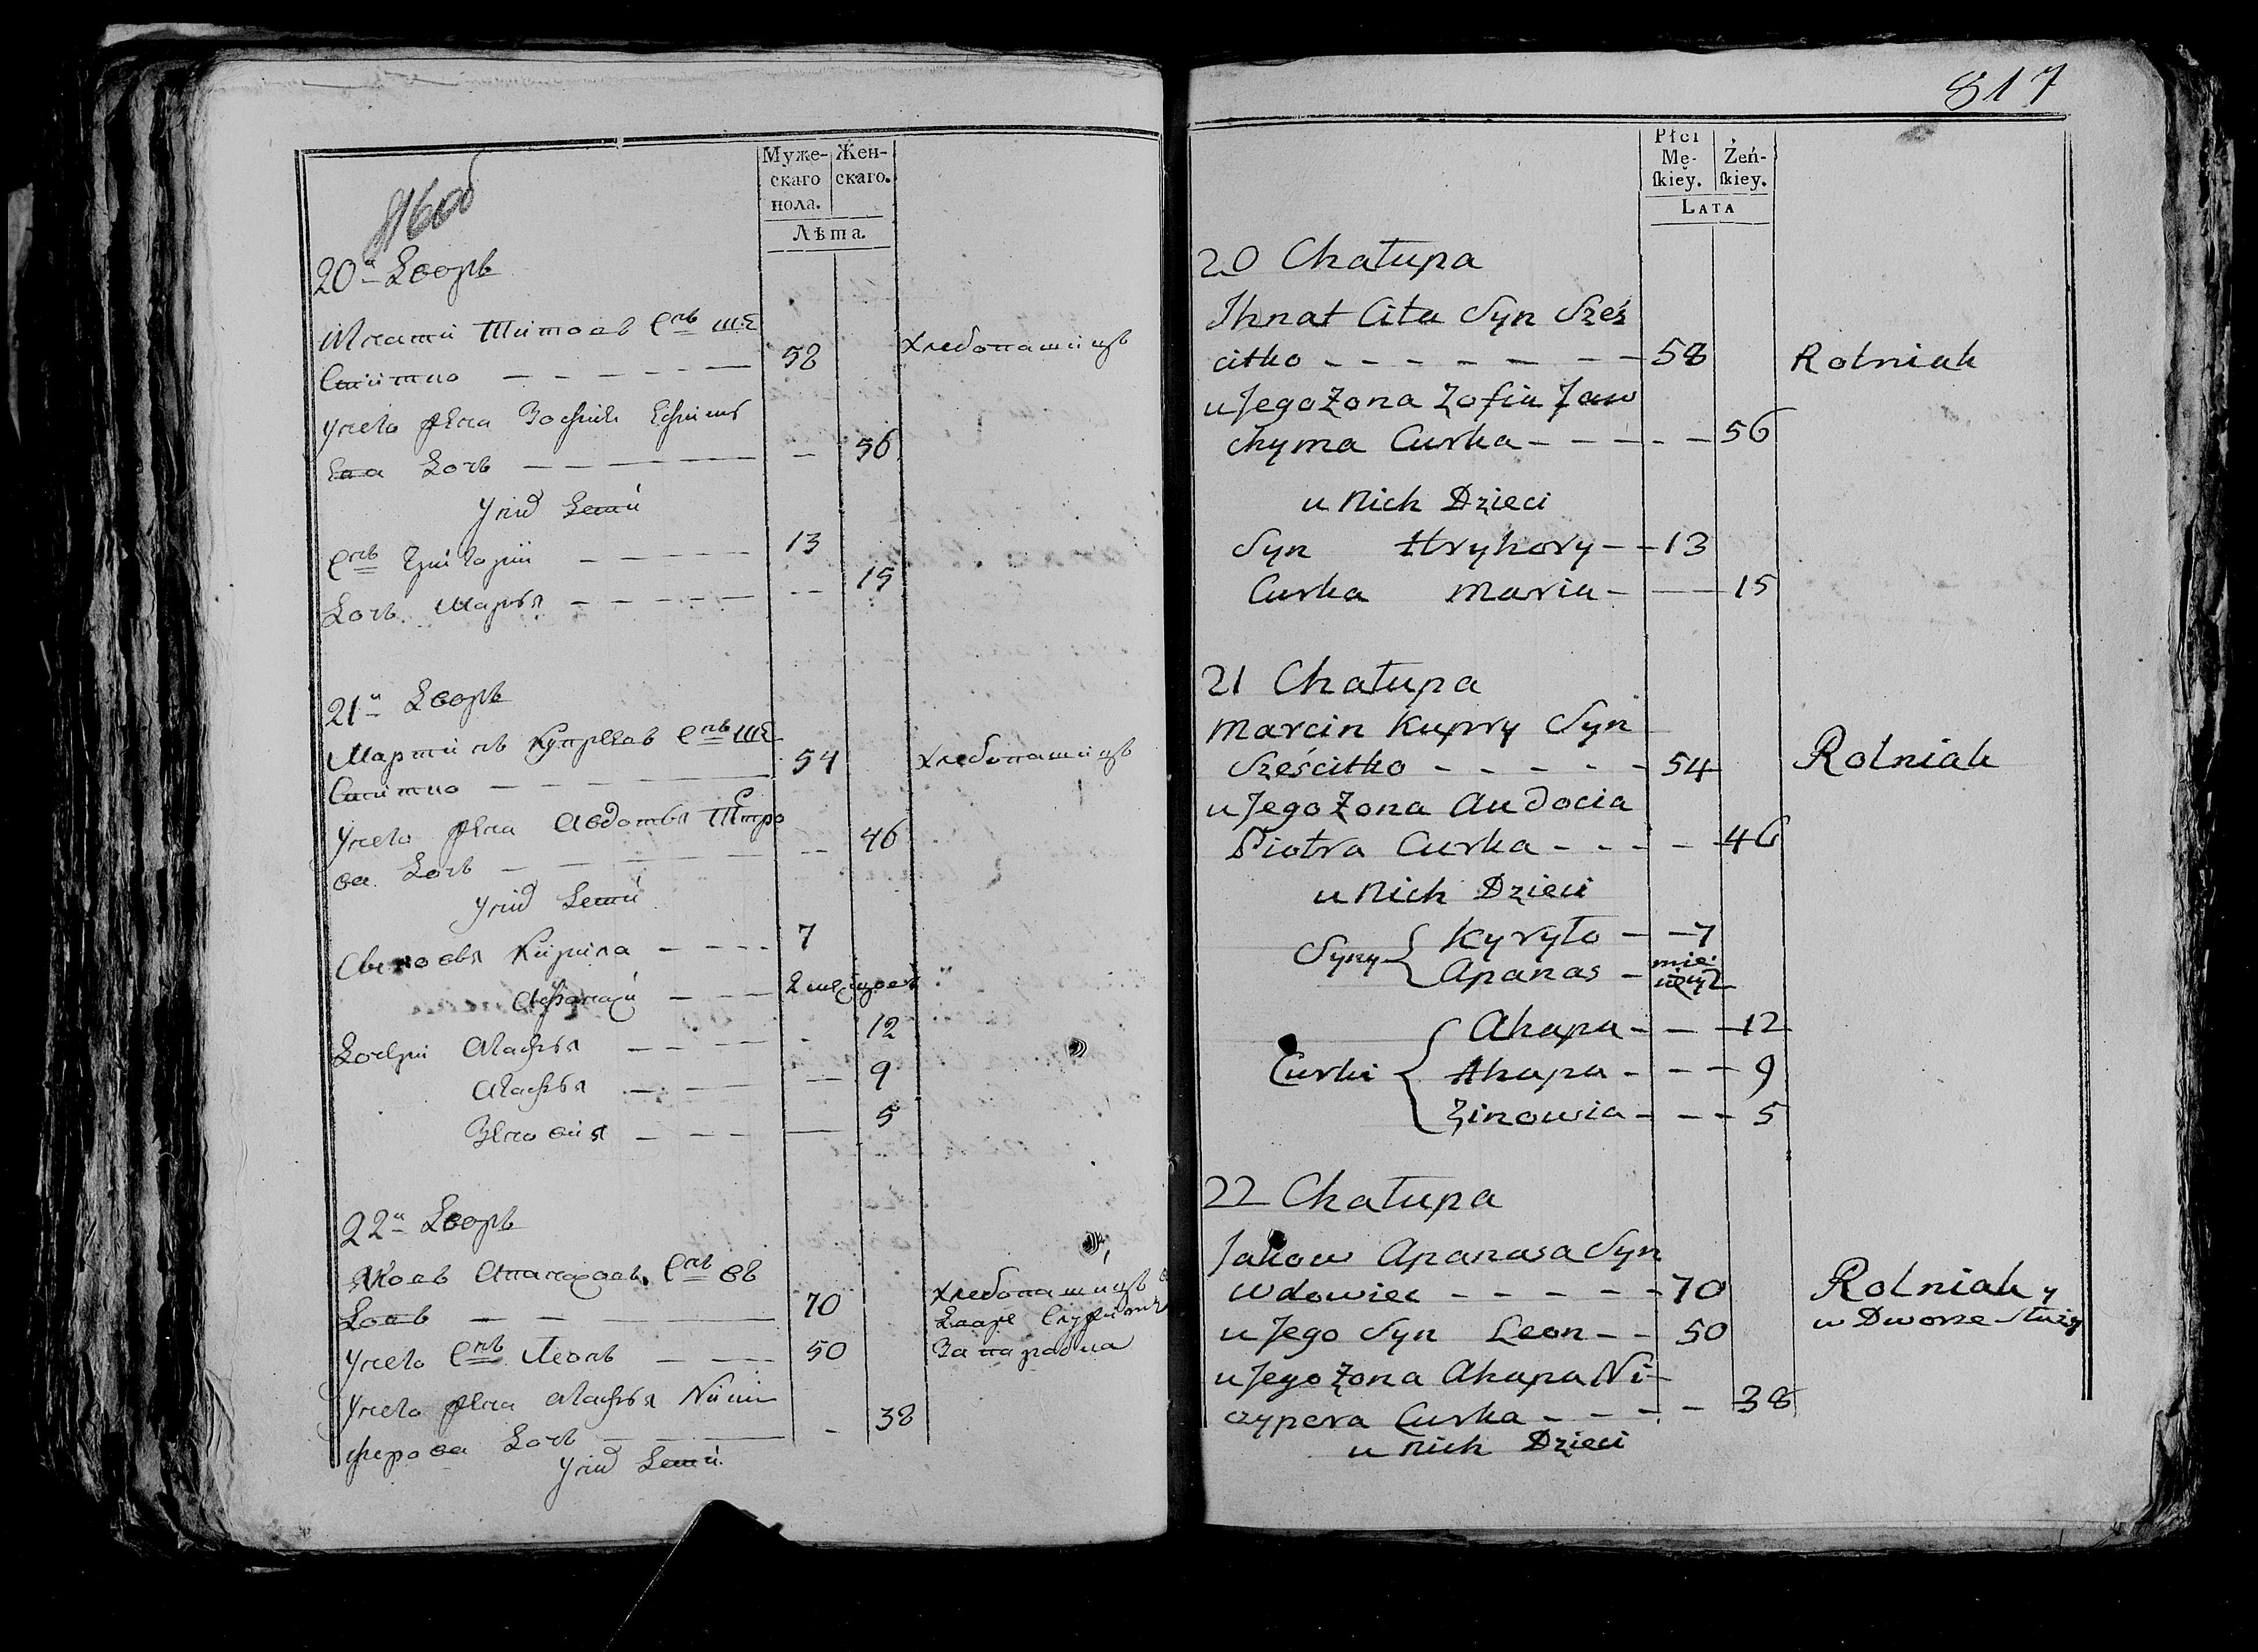 816об
Муже- Жен-
скаго скаго.
пола.
Лѣта.
20й Дворъ
Игнатій Титовъ Снъ Ше
ститко — — — — — 58 Хлебопашицъ
Унего Жена Зофия Ефимо
ва Дочь — — — — — 56
Уних Дети
Снъ Григорій — — — 13
Дочь Марья — — — — 15
21й Дворъ
Мартинъ Купреевъ Снъ Ше
ститко — — — 54 Хлебопашицъ
Унего Жена Авдотья Петро
ва Дочь — — — 46
Уних Дети
Сыновья Кирила — — — 7
Афанасій — — — 2 месяцовъ
Дочери Агафья — — — 12
Агафья — — — 9
Зеновия — — — 5
22й Дворъ
Яковъ Апанасовъ Снъ Вд
Довъ — — — 70 Хлебопашицъ
Дворе Служитъ
Унего Снъ Леонъ — — 50
Унего Жена Агафья Ники
ферова Дочь — — — 38
Уних Дети
817
Płci
Mę- Żeń-
skiey. skiey.
LATA
20 Chałupa
Ihnat Cita Syn Sześ
citko — — — — — — 58 Rolniak
u Jego Żona Zofia Jaw
chyma Curka — — — — 56
u Nich Dzieci
Syn Hryhory — — 13
Curka Maria — — — 15
21 Chałupa
Marcin Kupry Syn
Sześcitko — — — — — 54 Rolniak
u Jego Żona Audocia
Piotra Curka — — — — 46
u Nich Dzieci
Syny { Kyryło — — 7
Apanas — mie:
sięcy 2
Curki { Ahapa — — — 12
Ahapa — — — 9
Zinowia — — — 5
22 Chałupa
Jakow Apanasa Syn
Wdowiec — — — — — 70 Rolniak y
w Dworze służy
u Jego Syn Leon — — 50
u Jego Żona Ahapa Ni-
czypera Curka — — — — 38
u Nich Dzieci